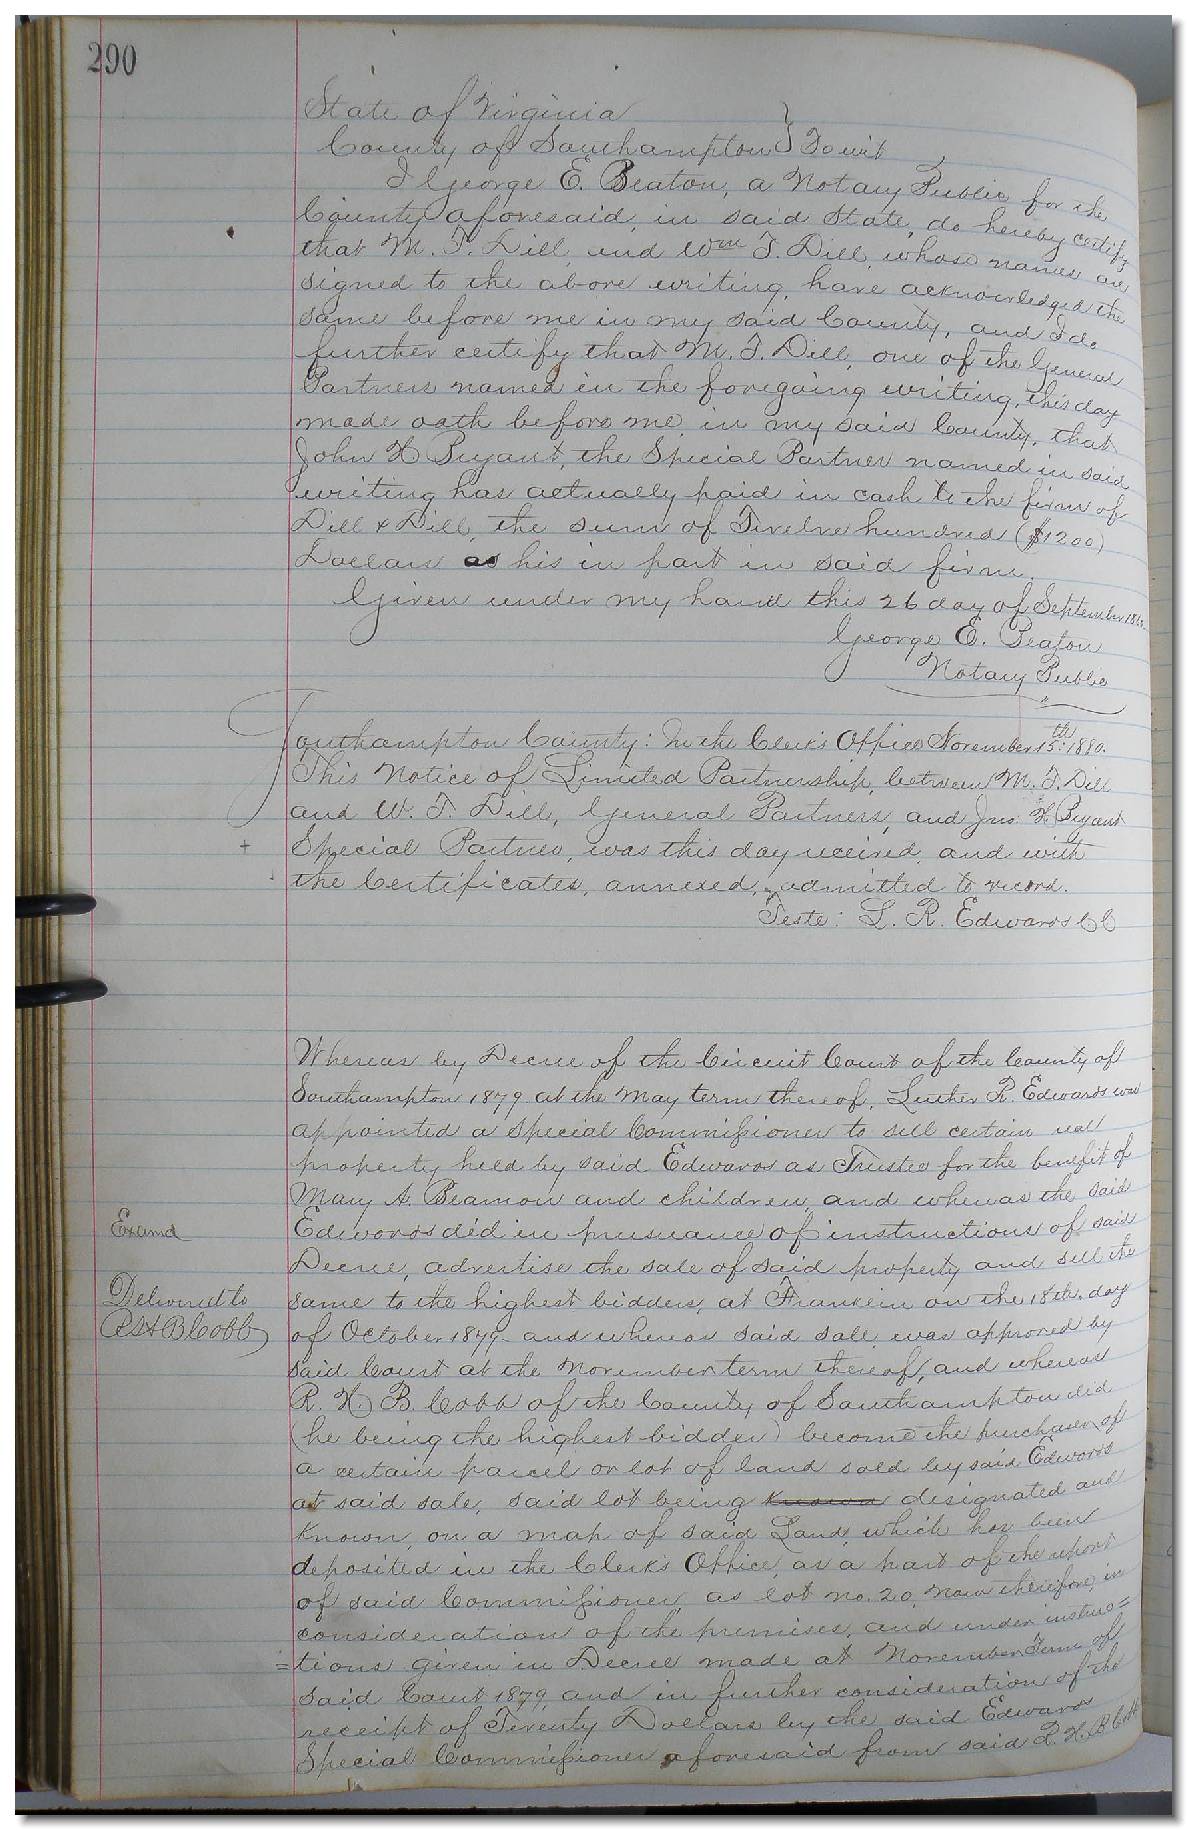 290
State of Virginia
County of Southampton } To wit
I George E. Beaton, a Notary Public for the
County aforesaid, in said State, do hereby certify
that M. T. Dill, and Wm T. Dill, whose names are
signed to the above writing, have acknowledged the
same before me in my said County, and I do
further certify that M. T. Dill, one of the General
Partners named in the foregoing writing, this day
made oath before me, in my said County, that
John H Bryant, the Special Partner named in said
writing has actually paid in cash to the firm of
Dill & Dill, the sum of Twelve hundred ($1200)
Dollars as his in part in said firm.
Given under my hand this 26 day of September
George E. Beaton
Notary Public
Southampton County: In the Clerk's Office November 15th 1880.
This Notice of Limited Partnership, between M. T. Dill
and W. T. Dill, General Partners, and Jno. H. Bryant
Special Partner, was this day received, and with
the Certificates, annexed, admitted to record.
Teste: L. R. Edwards CC
Whereas by Decree of the Circuit Court of the County of
Southampton 1879 at the May term thereof, Luther R. Edwards was
appointed a Special Commissioner to sell certain real
property held by said Edwards as Trustee for the benefit of
Mary A. Beamon and children, and whereas the said
Examd
Edwards did in pursuance of instructions of said
Decree, advertise the sale of said property and sell the
Delivered to
same to the highest bidders, at Franklin on the 18th day
R H B Cobb
of October 1879 and whereas said sale was approved by
said Court at the November term thereof, and whereas
R. H. B. Cobb of the County of Southampton did
(he being the highest bidder) become the purchaser of
a certain parcel or lot of land sold by said Edwards
at said sale, said lot being known designated and
known, on a map of said Land, which has been
deposited in the Clerk's Office, as a part of the report
of said Commissioner, as lot no. 20, Now therefore, in
consideration of the premises, and under instruc=
=tions given in Decree made at November Term of
said Court 1879, and in further consideration of the
receipt of Twenty Dollars by the said Edwards
Special Commissioner aforesaid from said R. H. B Cobb